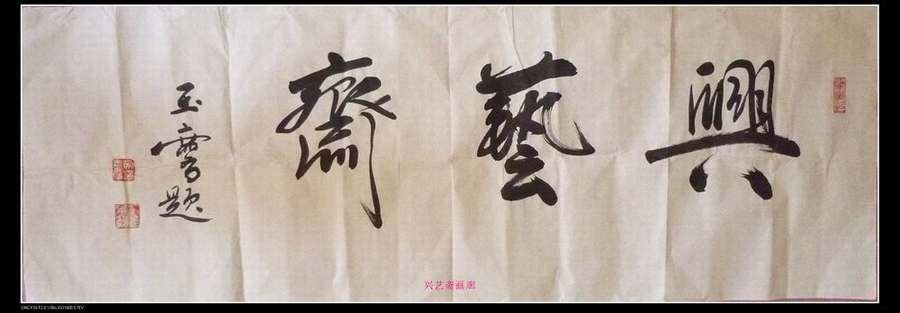 興藝齋
玉雪題
兴艺斋画廊